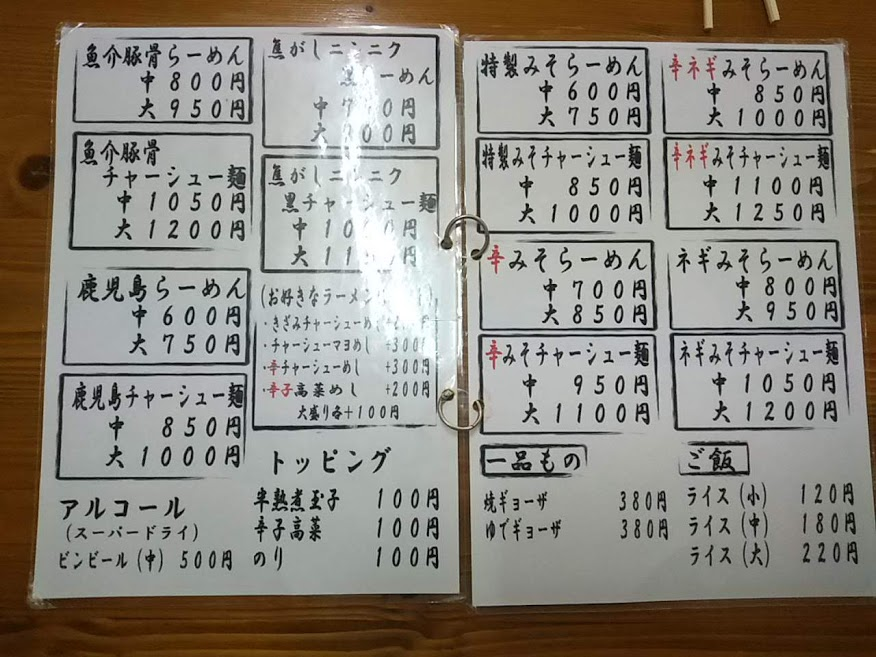 魚介豚骨らーめん
中 800円
大 950円
魚介豚骨
チャーシュー麺
中 1050円
大 1200円
鹿児島らーめん
中 600円
大 750円
鹿児島チャーシュー麺
中 850円
大 1000円
アルコール
(スーパードライ)
ビンビール(中) 500円
焦がしニンニク
黒らーめん
中 750円
大 900円
焦がしニンニク
黒チャーシュー麺
中
大
(お好きなラーメン
・きざみチャーシューめし
・チャーシューマヨめし +300円
・辛チャーシューめし +300円
・辛子高菜めし +200円
大盛り各+100円
トッピング
半熟煮玉子 100円
辛子高菜 100円
のり 100円
特製みそらーめん
中 600円
大 750円
特製みそチャーシュー麺
中 850円
大 1000円
辛みそらーめん
中 700円
大 850円
辛みそチャーシュー麺
中 950円
大 1100円
一品もの
焼ギョーザ 380円
ゆでギョーザ 380円
辛ネギみそらーめん
中 850円
大 1000円
辛ネギみそチャーシュー麺
中 1100円
大 1250円
ネギみそらーめん
中 800円
大 950円
ネギみそチャーシュー麺
中 1050円
大 1200円
ご飯
ライス(小) 120円
ライス(中) 180円
ライス(大) 220円